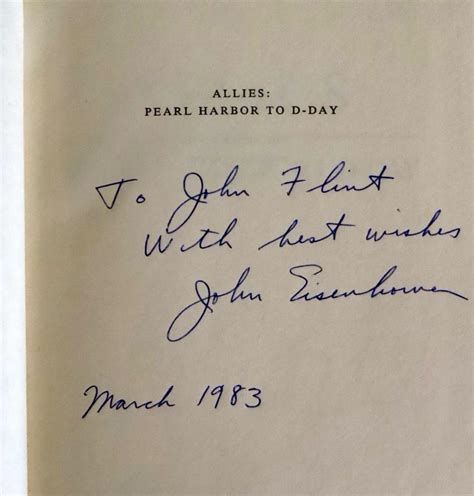 ALLIES:
PEARL HARBOR TO D-DAY
To John Flint
With best wishes
John Eisenhower
March 1983